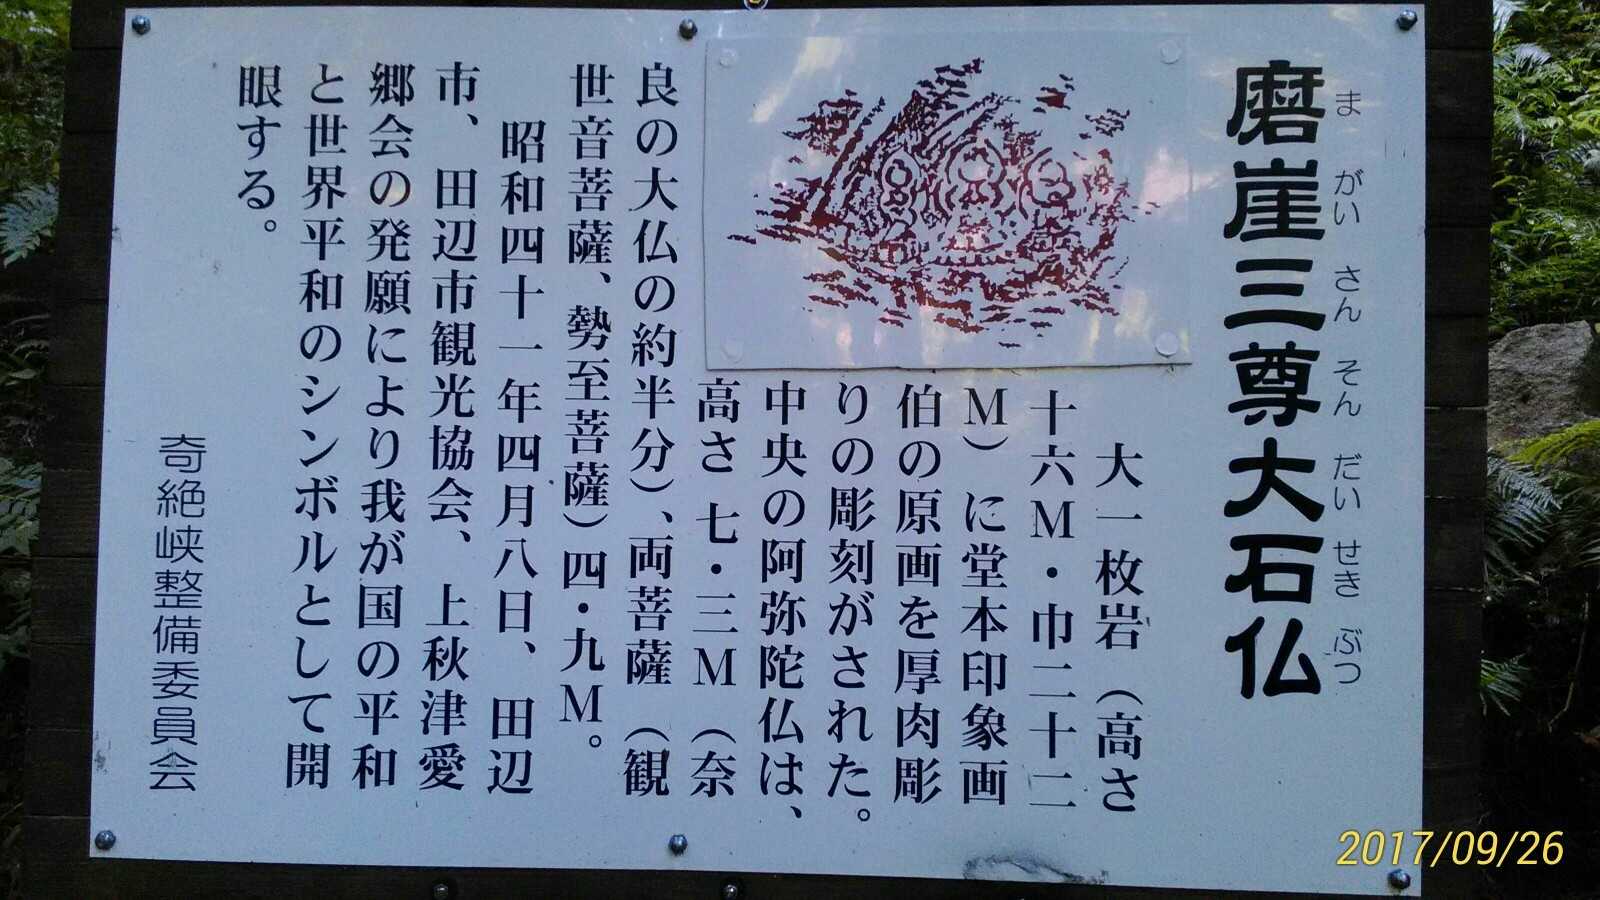 磨崖三尊大石仏
ま がい さん そん だい せき ぶつ
大一枚岩（高さ
十六M・巾二十二
M）に堂本印象画
伯の原画を厚肉彫
りの彫刻がされた。
中央の阿弥陀仏は、
高さ七・三M（奈
良の大仏の約半分）、両菩薩（観
世音菩薩、勢至菩薩）四・九M。
昭和四十一年四月八日、田辺
市、田辺市観光協会、上秋津愛
郷会の発願により我が国の平和
と世界平和のシンボルとして開
眼する。
奇絶峡整備委員会
2017/09/26